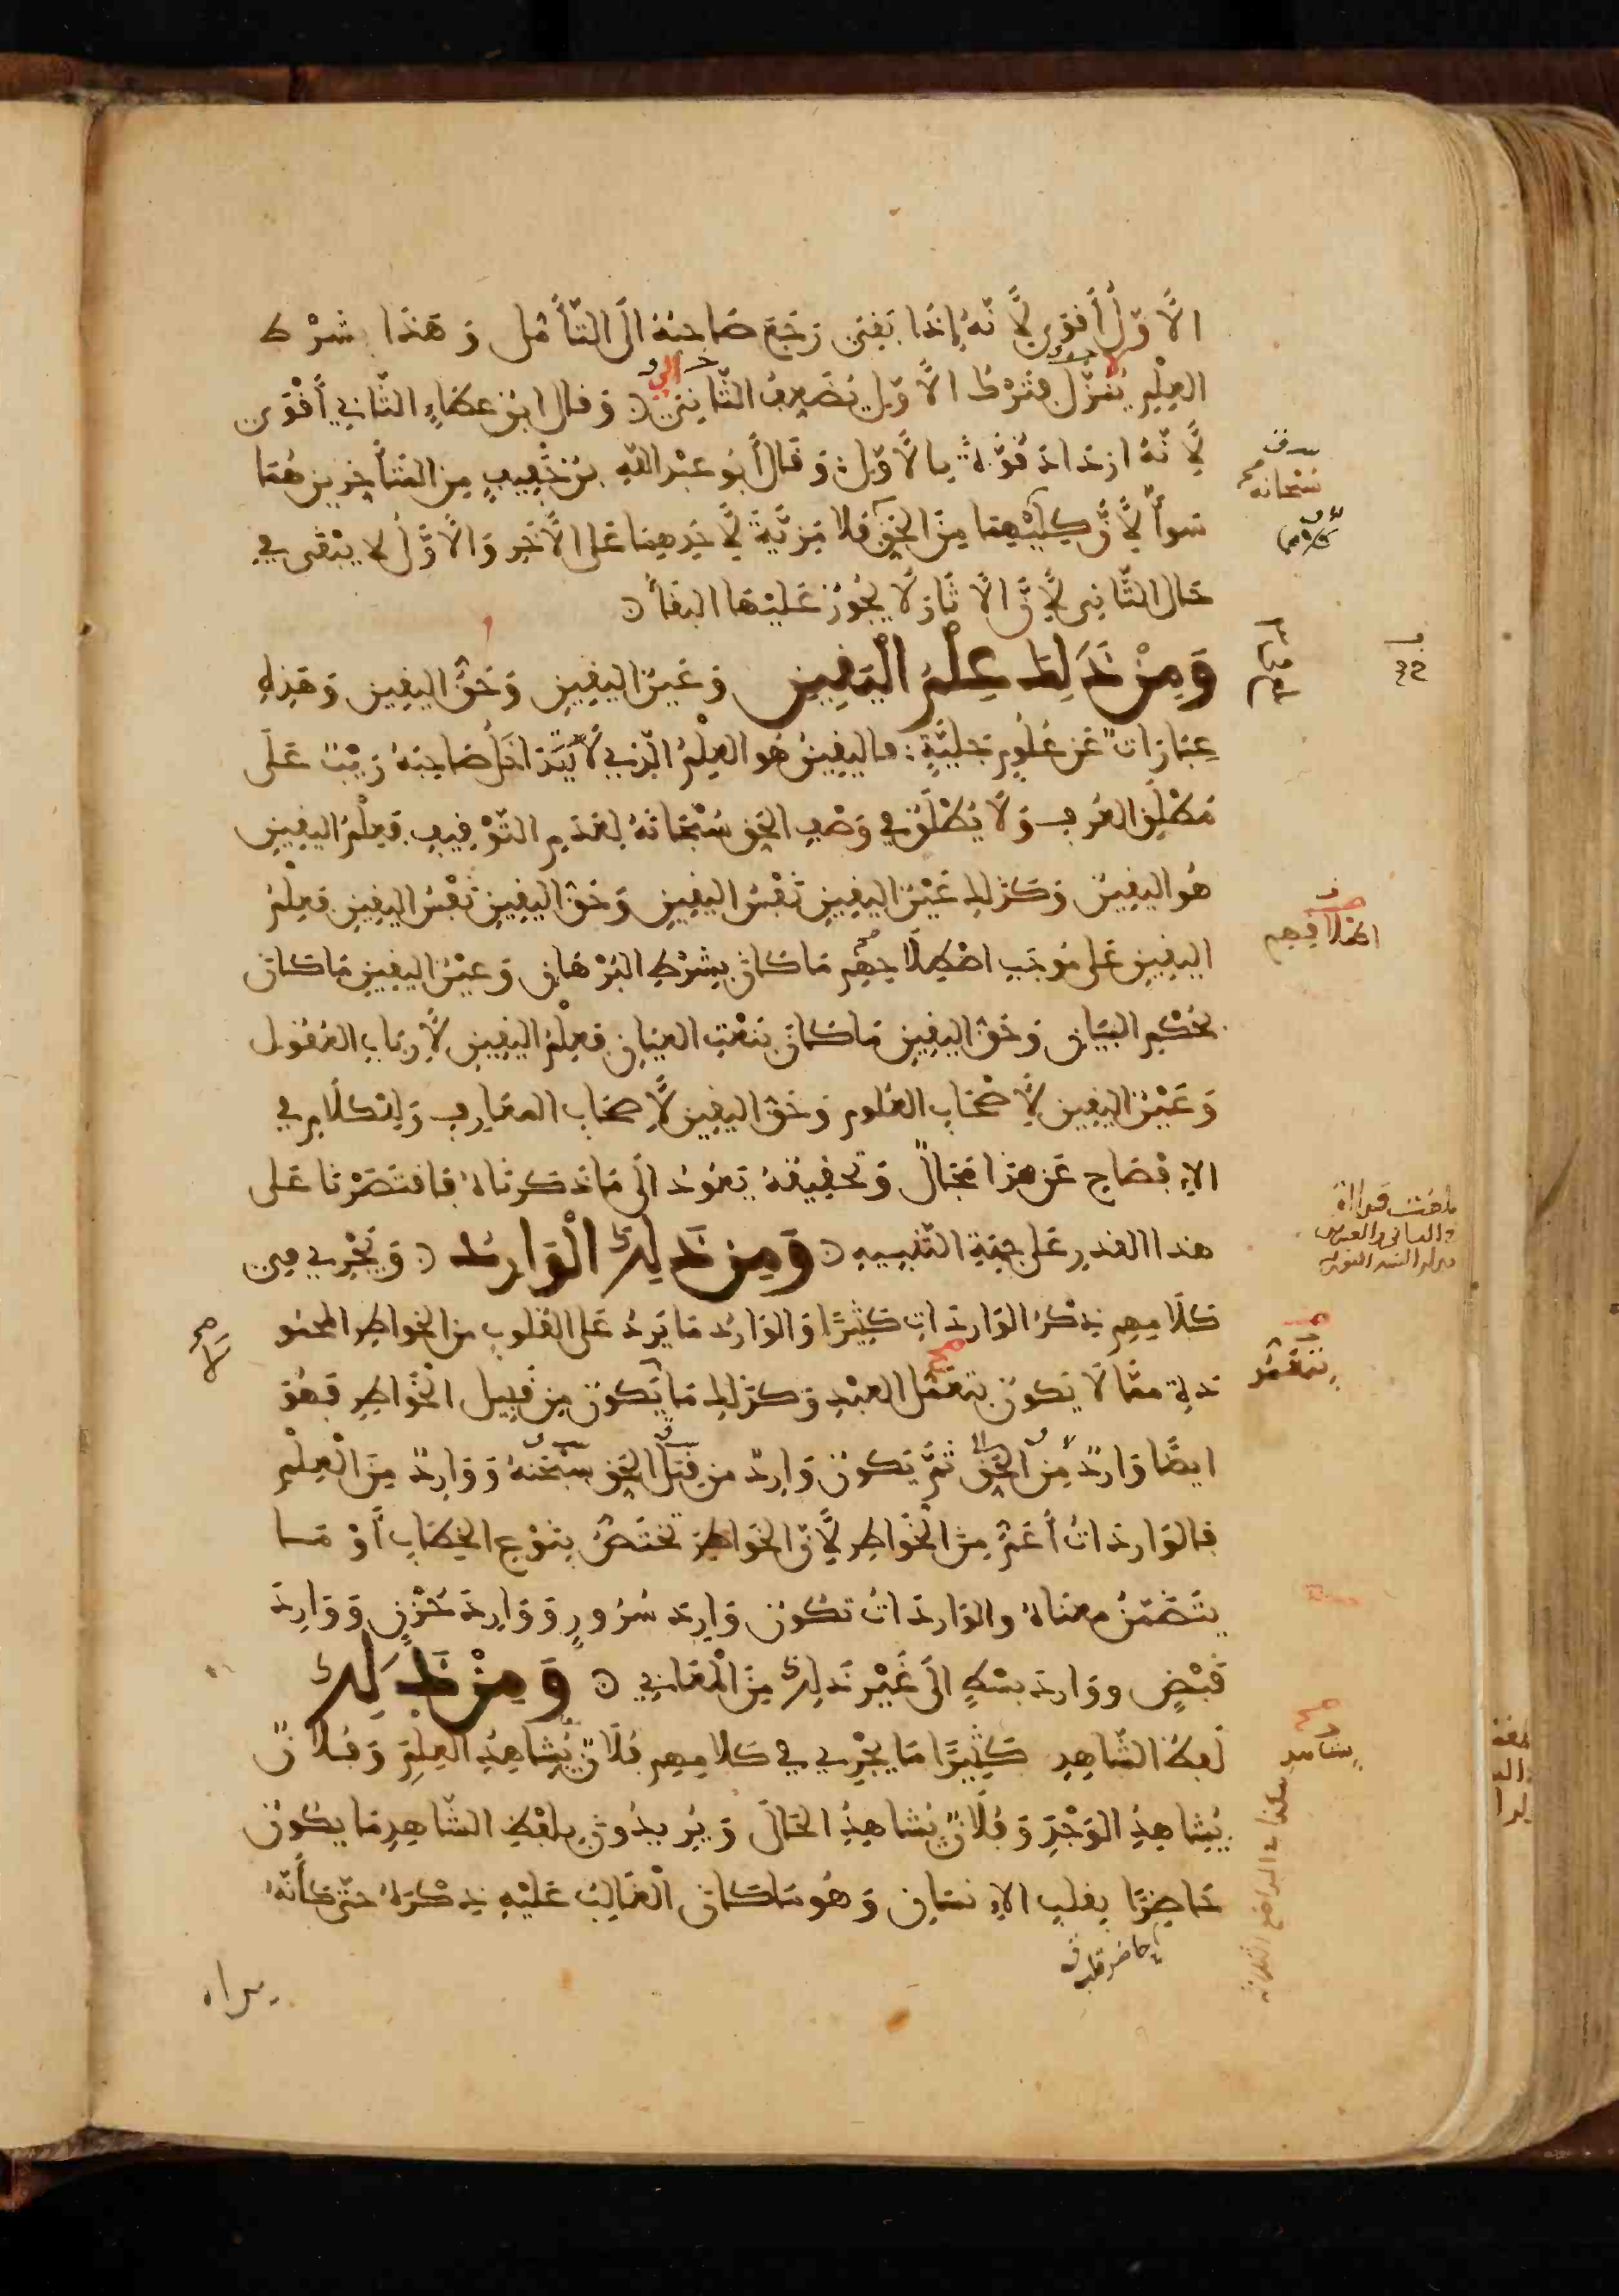 الأوّل أقوى لأنّه إذا بقي رجع صاحبه الى التأمل وهذا بشرط
العلم فترك الأوّل يضعف الثاني وقال ابن عطاء الثاني أقوى
لأنّه ازداد قوّة بالأوّل وقال أبو عبد الله بن خفيف من المتأخرين هما
سوأ لأنّ كليهما من الحق فلا مزيّة لأحدهما على الأخر والأوّل لا يبقى في
حال الثاني لأنّ الأثار لا يجوز عليها البقأ
ومن ذلك علم اليقين وعين اليقين وحق اليقين وهذه
عبارات عن علوم جليّة فاليقين هو العلم الذي لا يتداخل صاحبه ريب على
مطلق العرف ولا يطلق في وصف الحق سبحانه لعدم التوقيف فعلم اليقين
هو اليقين وكذلك عين اليقين نفس اليقين وحق اليقين نفس اليقين فعلم
اليقين على موجب اصطلاحهم ما كان بشرط البرهان وعين اليقين ما كان
بحكم البيان وحق اليقين ما كان بنعت العيان فعلم اليقين لأرباب العقول
وعين اليقين لأصحاب العلوم وحق اليقين لأصحاب المعارف وللكلام في
الإفصاح عن هذا مجال وتحقيقه يعود الى ما ذكرناه فاقتصرنا على
هذا القدر على جهة التنبيه ومن ذلك الوارد ويجري في
كلامهم ذكر الواردات كثيرا والوارد ما يرد على القلوب من الخواطر المحمو
دة مما لا يكون بتعمل العبد وكذلك ما لا يكون من قبيل الخواطر فهو
ايضا وارد من الحق ثم يكون وارد من قبل الحق سبحنه ووارد من العلم
فالواردات أعم من الخواطر لأنّ الخواطر تختص بنوع الخطاب أو ما
يتضمن معناه والواردات تكون وارد سرور ووارد حزن ووارد
قبض ووارد بسط الى غير ذلك من المعاني ومن ذلك
لفظ الشاهد كثيرا ما يجري في كلامهم فلان بشاهد العلم وفلان
بشاهد الوجد وفلان بشاهد الحال ويريدون بلفظ الشاهد ما يكون
حاضرا بقلب الإنسان وهو ما كان الغالب عليه ذكره حتى كأنّه
حاضر قلب
يراه
سبحانه
بتعمّد
بشاهد